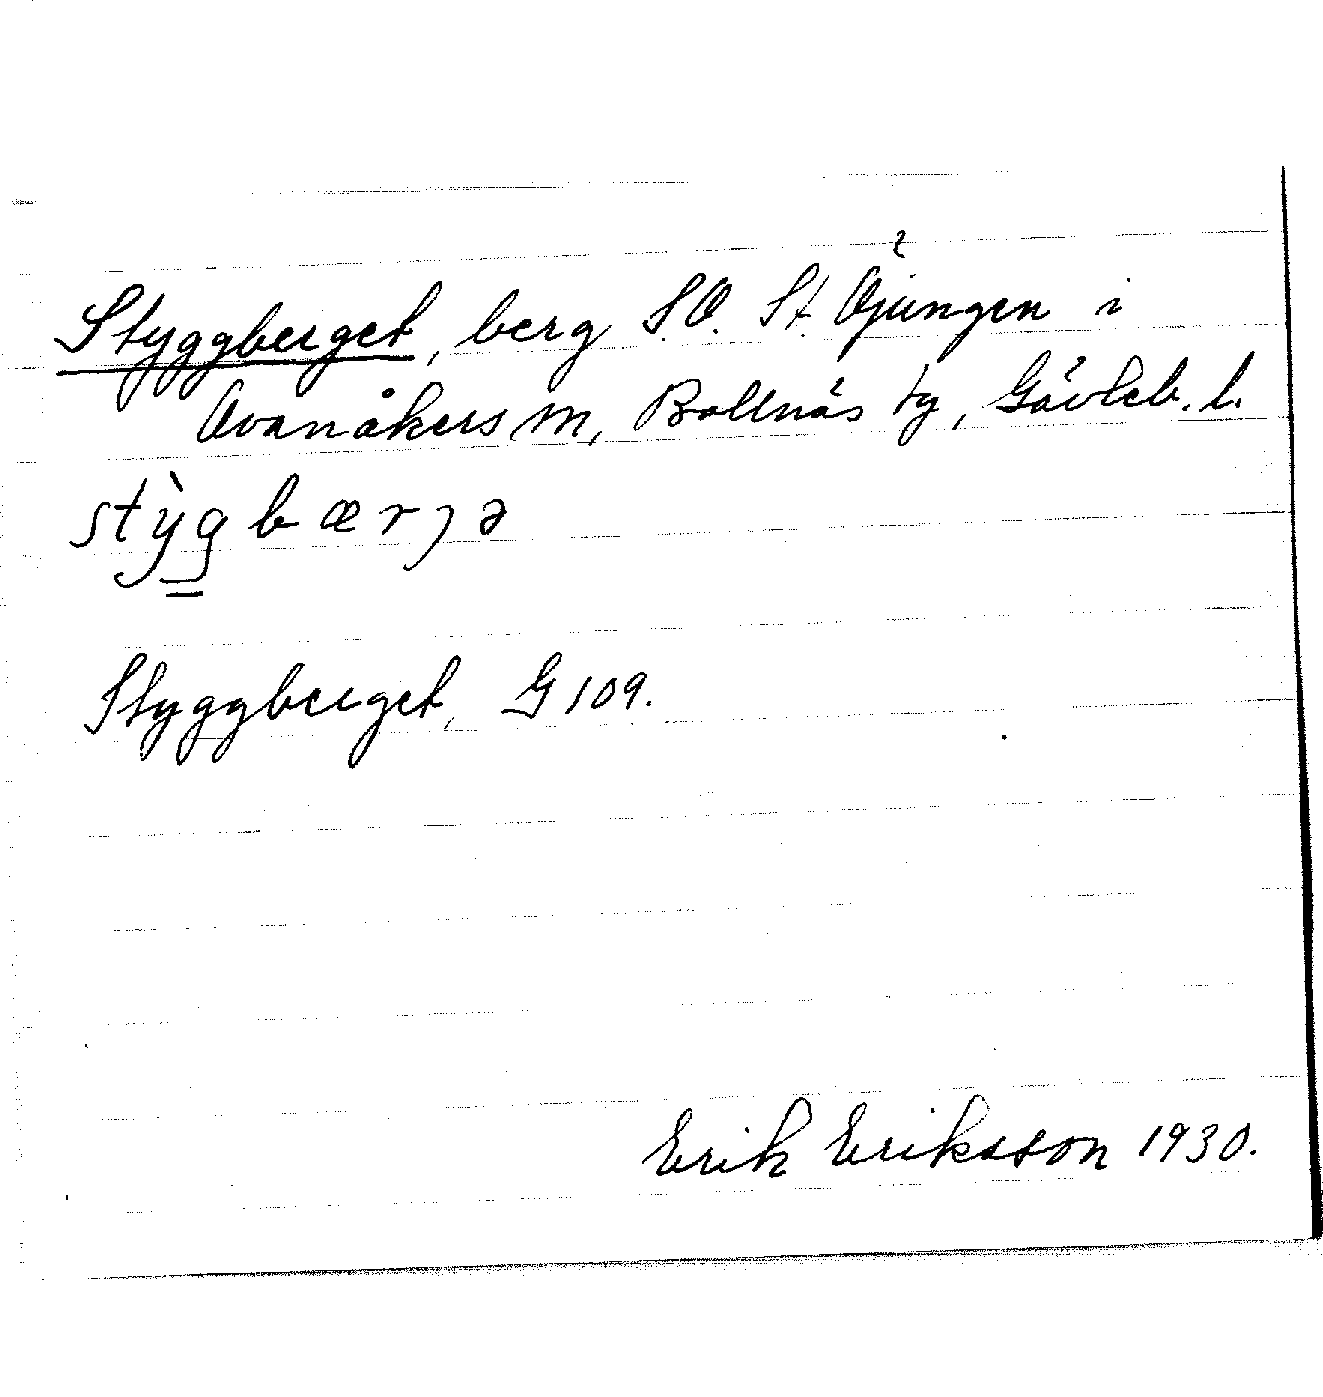 Styggberget, berg S.O. St. Öjungen i
Ovanåkers sn, Bollnäs tg, Gävleb. l.
stỳgbærjə
Styggberget, G 109.
Erik Eriksson 1930.